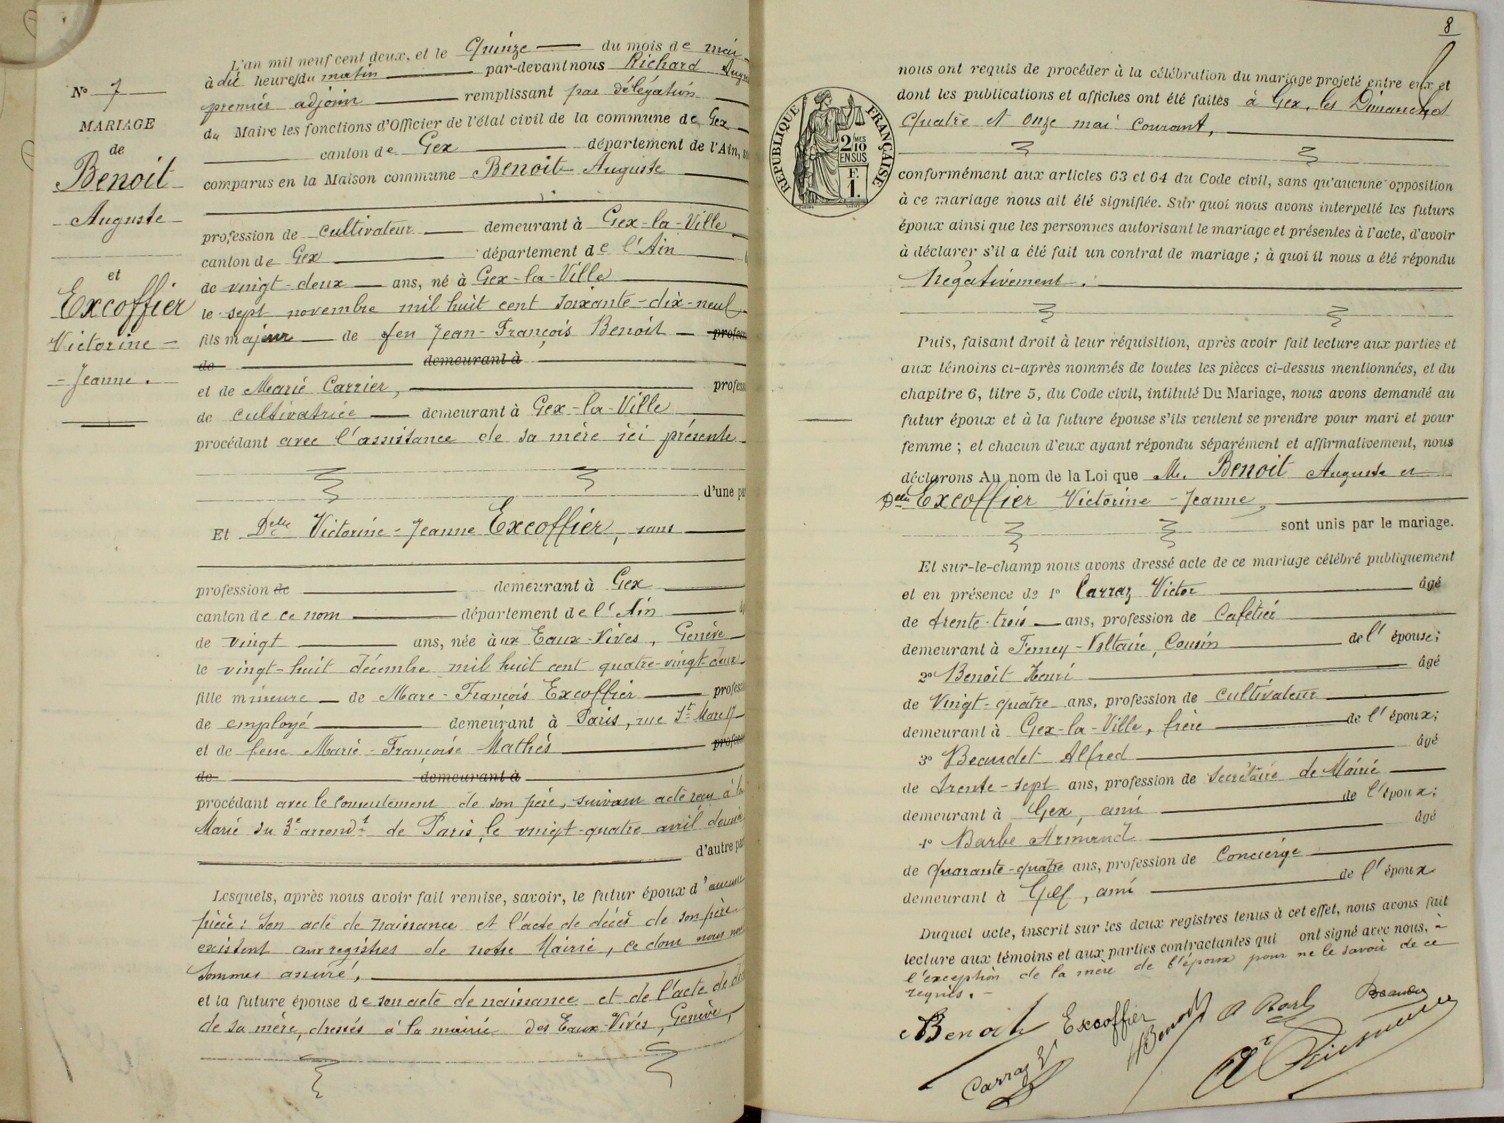 N° 7
MARIAGE
de
Benoit
Auguste
et
Excoffier
Victorine -
- Jeanne.
L'an mil neuf cent deux, et le Quinze du mois de mai
à dix heures du matin par-devant nous Richard
premier adjoint remplissant par délégation
du Maire les fonctions d'Officier de l'état civil de la commune de Gex
canton de Gex département de l'Ain,
comparus en la Maison commune Benoit Auguste
profession de Cultivateur demeurant à Gex-la-Ville
canton de Gex département de l'Ain
de vingt-deux ans, né à Gex-la-Ville
le sept novembre mil huit cent soixante-dix-neuf
fils majeur de feu Jean-François Benoit
de demeurant à
et de Marie Carrier,
de cultivatrice demeurant à Gex-la-Ville
procédant avec l'assistance de sa mère ici présente
d'une
Et Delle Victorine-Jeanne Excoffier, sans
profession de demeurant à Gex
canton de ce nom département de l'Ain
de vingt ans, née aux Eaux-Vives, Genève
le vingt-huit décembre mil huit cent quatre-vingt-deux
fille mineure de Marc-François Excoffier
de employé demeurant à Paris, rue St Marc 17
et de feue Marie-Françoise Mathès
de demeurant à
procédant avec le consentement de son père, suivant acte reçu à la
Mairie du 3e arrondt de Paris, le vingt-quatre avril dernier
d'autre
Lesquels, après nous avoir fait remise, savoir, le futur époux d'aucune
pièce: son acte de naissance et l'acte de décès de son père
existent aux registres de notre Mairie, ce dont nous nous
sommes assuré,
et la future épouse de son acte de naissance et de l'acte de
de sa mère, dressés à la mairie des Eaux-Vives, Genève,
8
RÉPUBLIQUE FRANÇAISE
2 MES
10
EN SUS
F.
1.
nous ont requis de procéder à la célébration du mariage projeté entre eux et
dont les publications et affiches ont été faites à Gex, les Dimanches
quatre et onze mai courant,
conformément aux articles 63 et 64 du Code civil, sans qu'aucune opposition
à ce mariage nous ait été signifiée. Sur quoi nous avons interpellé les futurs
époux ainsi que les personnes autorisant le mariage et présentes à l'acte, d'avoir
à déclarer s'il a été fait un contrat de mariage ; à quoi il nous a été répondu
négativement.
Puis, faisant droit à leur réquisition, après avoir fait lecture aux parties et
aux témoins ci-après nommés de toutes les pièces ci-dessus mentionnées, et du
chapitre 6, titre 5, du Code civil, intitulé Du Mariage, nous avons demandé au
futur époux et à la future épouse s'ils veulent se prendre pour mari et pour
femme ; et chacun d'eux ayant répondu séparément et affirmativement, nous
déclarons Au nom de la Loi que M. Benoit Auguste et
Delle Excoffier Victorine-Jeanne,
sont unis par le mariage.
Et sur-le-champ nous avons dressé acte de ce mariage célébré publiquement
et en présence de 1° Carraz Victor âgé
de trente-trois ans, profession de Cafetier
demeurant à Ferney-Voltaire, Cousin de l'épouse;
2° Benoit Henri âgé
de Vingt-quatre ans, profession de cultivateur
demeurant à Gex-la-Ville, frère de l'époux;
3° Beaudet Alfred âgé
de Trente-sept ans, profession de Secrétaire de Mairie
demeurant à Gex, ami de l'époux;
4° Barbe Armand âgé
de quarante-quatre ans, profession de Concierge
demeurant à Gex, ami de l'époux
Duquel acte, inscrit sur les deux registres tenus à cet effet, nous avons fait
lecture aux témoins et aux parties contractantes qui ont signé avec nous, à
l'exception de la mère de l'époux pour ne le savoir de ce
requis.
Benoit Excoffier HBenoit Beaudet
Carraz V